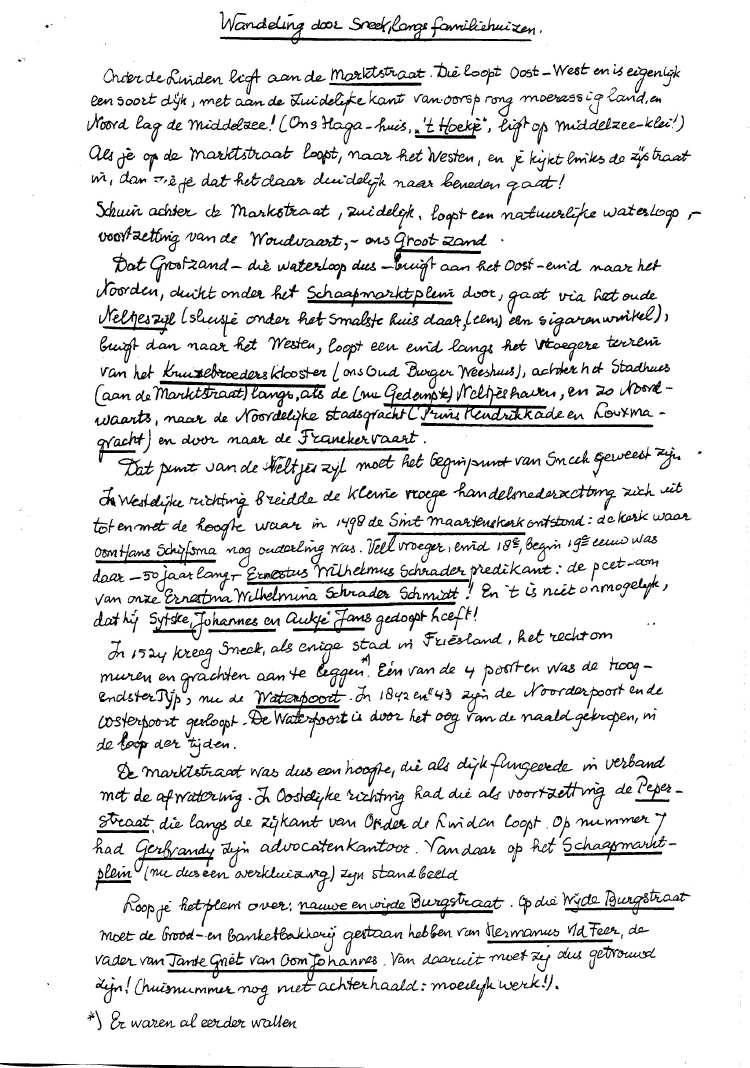 Wandeling door Sneek, langs familiehuizen.
Onder de Linden ligt aan de Marktstraat. Die loopt Oost-West en is eigenlijk
een soort dijk, met aan de Zuidelijke kant van oorsprong moerassig land, en
Noord lag de Middelzee! (Ons Haga-huis, "'t Hoekje", ligt op Middelzee-klei!)
Als je op de Marktstraat loopt, naar het Westen, en je kijkt links de zijstraat
in, dan zie je dat het daar duidelijk naar beneden gaat!
Schuin achter de Markstraat, zuidelijk, loopt een natuurlijke waterloop,-
voortzetting van de Woudvaart,- ons Groot zand.
Dat Grootzand - die waterloop dus - buigt aan het Oost-eind naar het
Noorden, duikt onder het Schaapmarktplein door, gaat via het oude
Neltjeszijl (sluisje onder het smalste huis daar, (eens) een sigarenwinkel),
buigt dan naar het Westen, loopt een eind langs het vroegere terrein
van het Kruisebroeders klooster (ons Oud Burger Weeshuis), achter het Stadhuis
(aan de Marktstraat) langs, als de (nu Gedempte) Neltjeshaven, en zo Noord-
waarts, naar de Noordelijke stadsgracht (Prins Hendrikkade en Looxma-
gracht) en door naar de Franekervaart.
Dat punt van de Neltjeszijl moet het beginpunt van Sneek geweest zijn.
In Westelijke richting breidde de kleine vroege handelsnederzetting zich uit
tot en met de hoogte waar in 1498 de Sint Maartenskerk ontstond: de kerk waar
oom Hans Schijfsma nog ouderling was. Veel vroeger, eind 18e, begin 19e eeuw was
daar - 50 jaar lang,- Ernestus Wilhelmus Schrader predikant: de peet-oom
van onze Ernestina Wilhelmina Schrader Schmidt! En 't is niet onmogelijk,
dat hij Sytske, Johannes en Aukje Jans gedoopt heeft!
In 1524 kreeg Sneek, als enige stad in Friesland, het recht om
muren en grachten aan te leggen*). Eén van de 4 poorten was de Hoog-
endster Pijp, nu de Waterpoort. In 1842 en '43 zijn de Noorderpoort en de
Oosterpoort gesloopt. De Waterpoort is door het oog van de naald gekropen, in
de loop der tijden.
De Marktstraat was dus een hoogte, die als dijk fungeerde in verband
met de afwatering. In Oostelijke richting had die als voortzetting de Peper-
straat, die langs de zijkant van Onder de Linden loopt. Op nummer 7
had Gerbrandy zijn advocatenkantoor. Vandaar op het Schaapmarkt-
plein (nu dus een overkluizing) zijn standbeeld
Loop je het plein over: nauwe en wijde Burgstraat. Op die Wijde Burgstraat
moet de brood- en banketbakkerij gestaan hebben van Hermanus v/d Feer, de
vader van Tante Griët van Oom Johannes. Van daaruit moet zij dus getrouwd
zijn! (huisnummer nog niet achterhaald: moeilijk werk!).
*) Er waren al eerder wallen